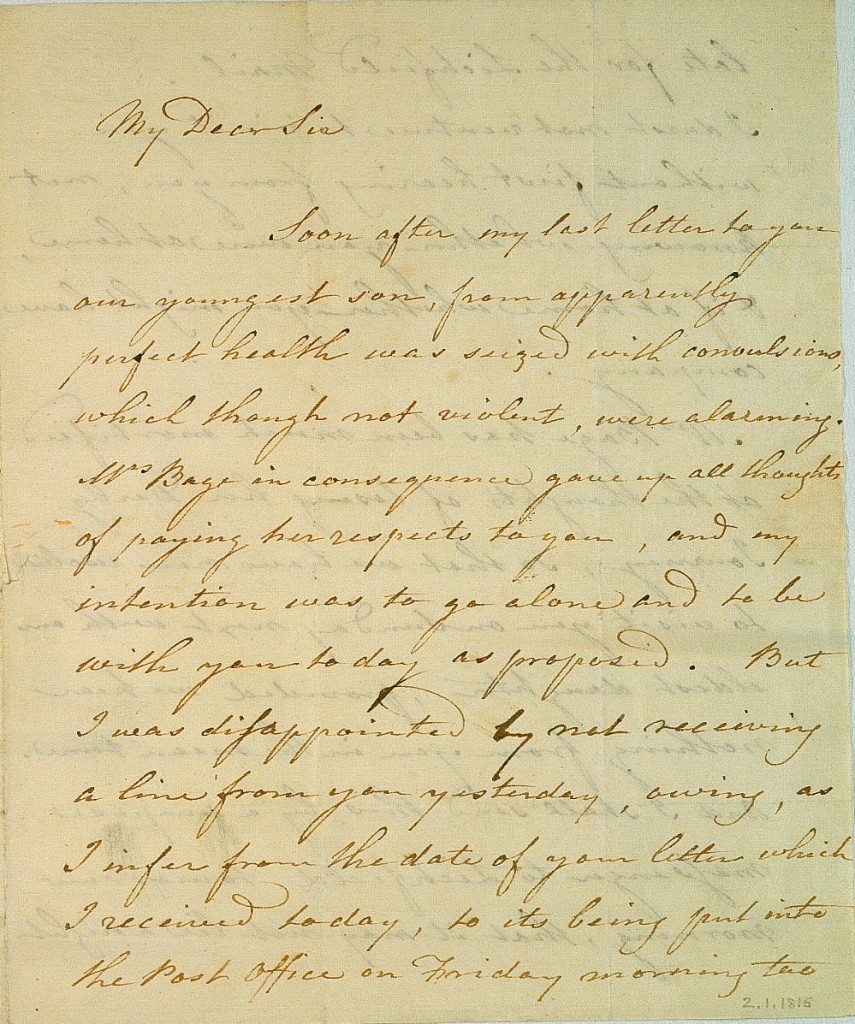 My Dear Sir
Soon after my last letter to you
our youngest son, from apparently
perfect health was seized with convulsions,
which though not violent, were alarming.
Mrs Bage in consequence gave up all thoughts
of paying her respects to you, and my
intention was to go alone and to be
with you today as proposed. But
I was disappointed by not receiving
a line from you yesterday, owing, as
I infer from the date of your letter which
I received today, to its being put into
the Post Office on Friday morning too
2.1.1815